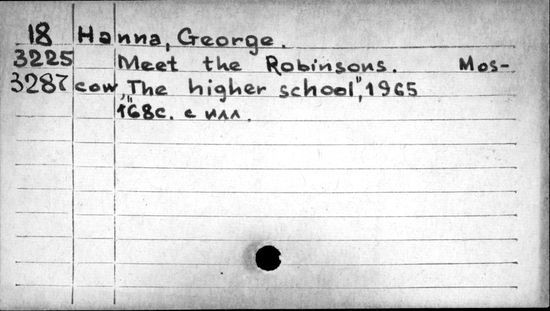 18 Hanna, George.
3225 Meet the Robinsons. Mos-
3287 cow, „The higher school", 1965
168c. с илл.